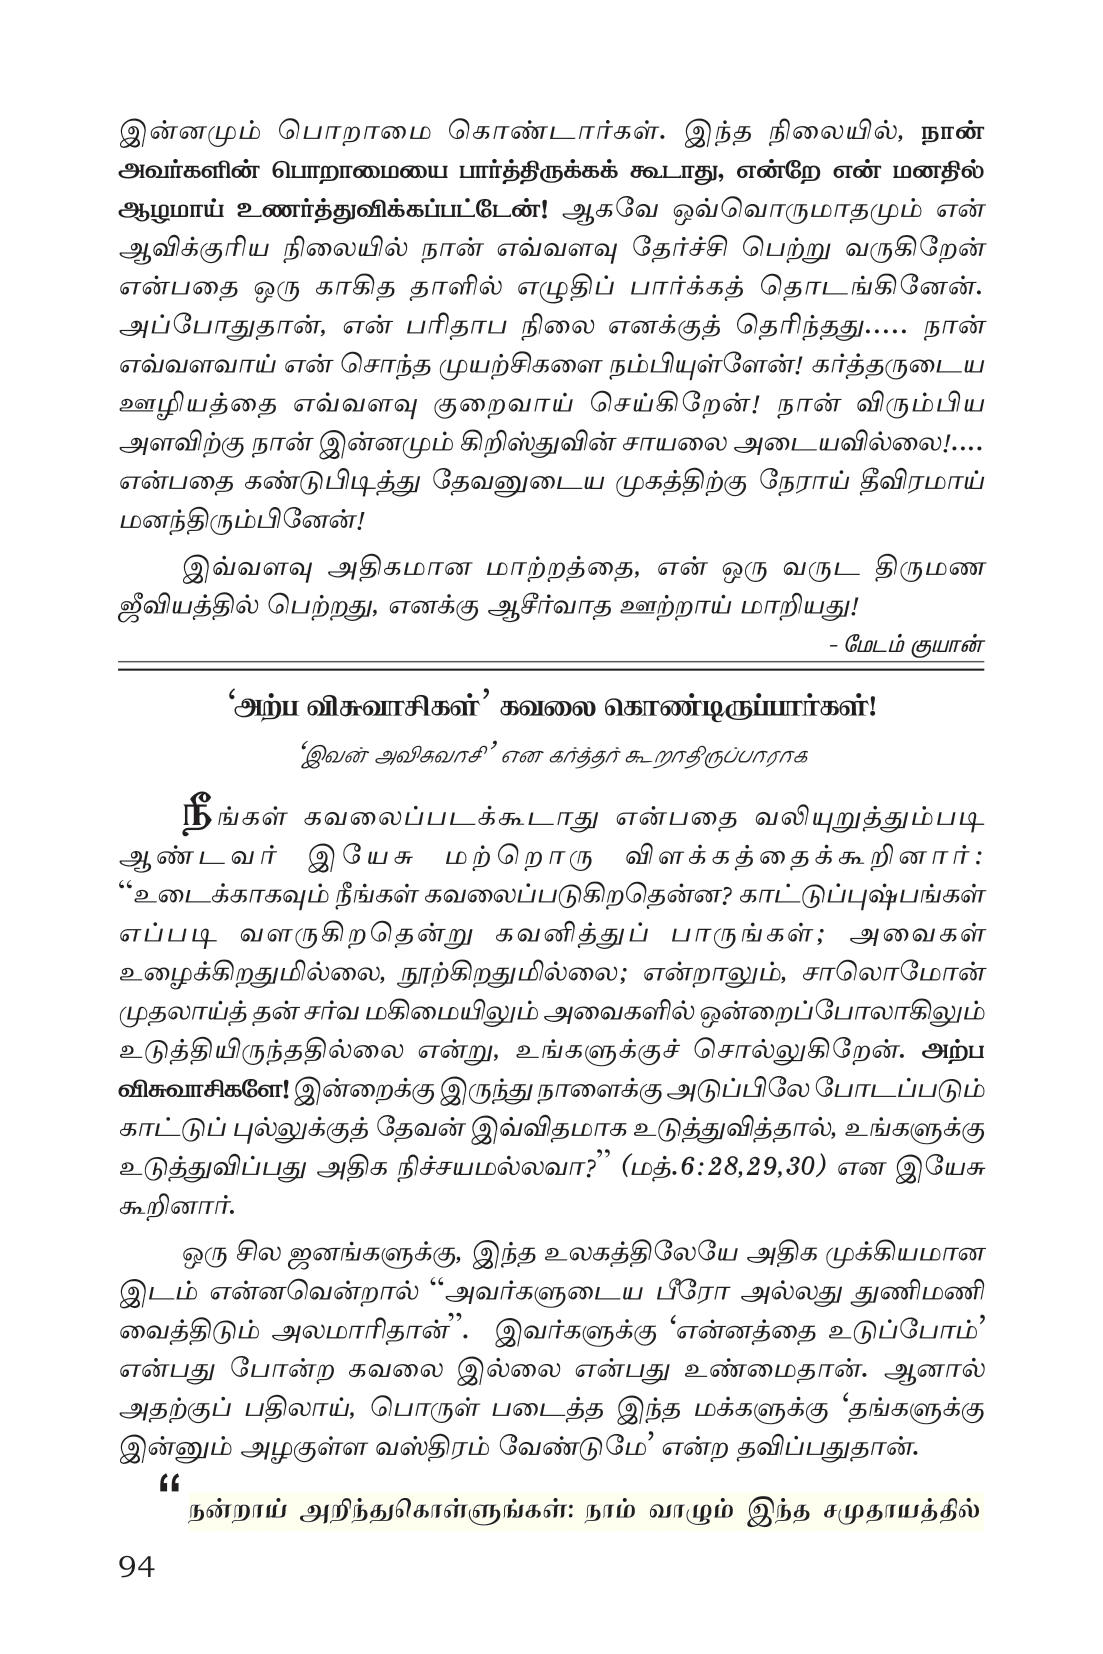 இன்னமும் பொறாமை கொண்டார்கள். இந்த நிலையில், நான்
அவர்களின் பொறாமையை பார்த்திருக்கக் கூடாது, என்றே என் மனதில்
ஆழமாய் உணர்த்துவிக்கப்பட்டேன்! ஆகவே ஒவ்வொருமாதமும் என்
ஆவிக்குரிய நிலையில் நான் எவ்வளவு தேர்ச்சி பெற்று வருகிறேன்
என்பதை ஒரு காகித தாளில் எழுதிப் பார்க்கத் தொடங்கினேன்.
அப்போதுதான், என் பரிதாப நிலை எனக்குத் தெரிந்தது..... நான்
எவ்வளவாய் என் சொந்த முயற்சிகளை நம்பியுள்ளேன்! கர்த்தருடைய
ஊழியத்தை எவ்வளவு குறைவாய் செய்கிறேன்! நான் விரும்பிய
அளவிற்கு நான் இன்னமும் கிறிஸ்துவின் சாயலை அடையவில்லை!....
என்பதை கண்டுபிடித்து தேவனுடைய முகத்திற்கு நேராய் தீவிரமாய்
மனந்திரும்பினேன்!
இவ்வளவு அதிகமான மாற்றத்தை, என் ஒரு வருட திருமண
ஜீவியத்தில் பெற்றது, எனக்கு ஆசீர்வாத ஊற்றாய் மாறியது!
- மேடம் குயான்
‘அற்ப விசுவாசிகள்’ கவலை கொண்டிருப்பார்கள்!
‘இவன் அவிசுவாசி’ என கர்த்தர் கூறாதிருப்பாராக
நீங்கள் கவலைப்படக்கூடாது என்பதை வலியுறுத்தும்படி
ஆண்டவர் இயேசு மற்றொரு விளக்கத்தைக்கூறினார்:
“உடைக்காகவும் நீங்கள் கவலைப்படுகிறதென்ன? காட்டுப்புஷ்பங்கள்
எப்படி வளருகிறதென்று கவனித்துப் பாருங்கள்; அவைகள்
உழைக்கிறதுமில்லை, நூற்கிறதுமில்லை; என்றாலும், சாலொமோன்
முதலாய்த் தன் சர்வ மகிமையிலும் அவைகளில் ஒன்றைப்போலாகிலும்
உடுத்தியிருந்ததில்லை என்று, உங்களுக்குச் சொல்லுகிறேன். அற்ப
விசுவாசிகளே! இன்றைக்கு இருந்து நாளைக்கு அடுப்பிலே போடப்படும்
காட்டுப் புல்லுக்குத் தேவன் இவ்விதமாக உடுத்துவித்தால், உங்களுக்கு
உடுத்துவிப்பது அதிக நிச்சயமல்லவா?” (மத்.6:28,29,30) என இயேசு
கூறினார்.
ஒரு சில ஜனங்களுக்கு, இந்த உலகத்திலேயே அதிக முக்கியமான
இடம் என்னவென்றால் “அவர்களுடைய பீரோ அல்லது துணிமணி
வைத்திடும் அலமாரிதான்”. இவர்களுக்கு ‘என்னத்தை உடுப்போம்’
என்பது போன்ற கவலை இல்லை என்பது உண்மைதான். ஆனால்
அதற்குப் பதிலாய், பொருள் படைத்த இந்த மக்களுக்கு ‘தங்களுக்கு
இன்னும் அழகுள்ள வஸ்திரம் வேண்டுமே’ என்ற தவிப்பதுதான்.
“ நன்றாய் அறிந்துகொள்ளுங்கள்: நாம் வாழும் இந்த சமுதாயத்தில்
94